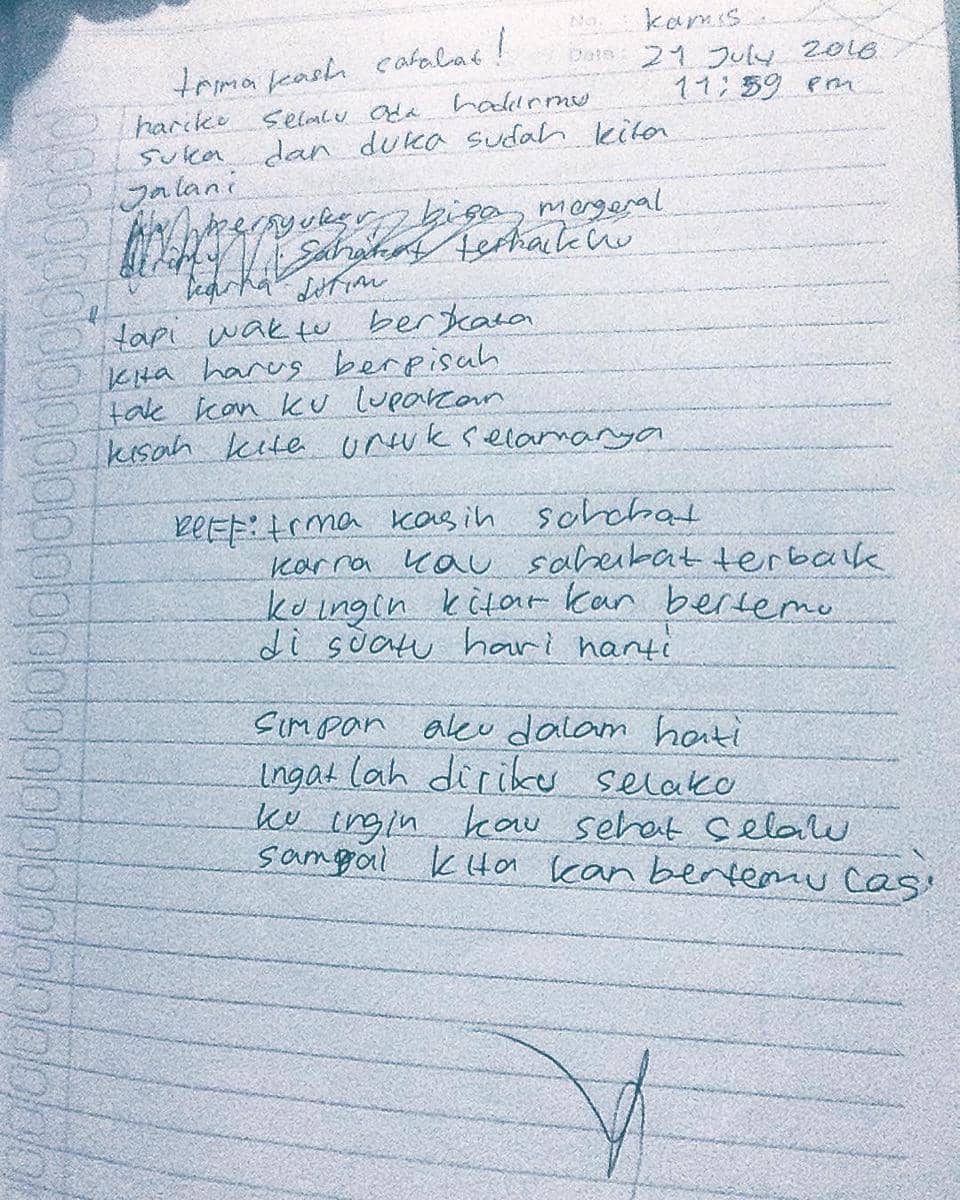 No. kamis
Date 21 July 2016
11:59 pm
trima kasih !
hariku selalu ada hadirmu
suka dan duka sudah kita
Jalani
bersyukur bisa mengenal
sahabat terbaikku
tapi waktu berkata
kita harus berpisah
tak kan ku lupakan
kisah kita untuk selamanya
Reff: trima kasih sahabat
karna kau sahabat terbaik
ku ingin kita kan bertemu
di suatu hari nanti
Simpan aku dalam hati
Ingatlah diriku selalu
ku ingin kau sehat selalu
sampai kita kan bertemu